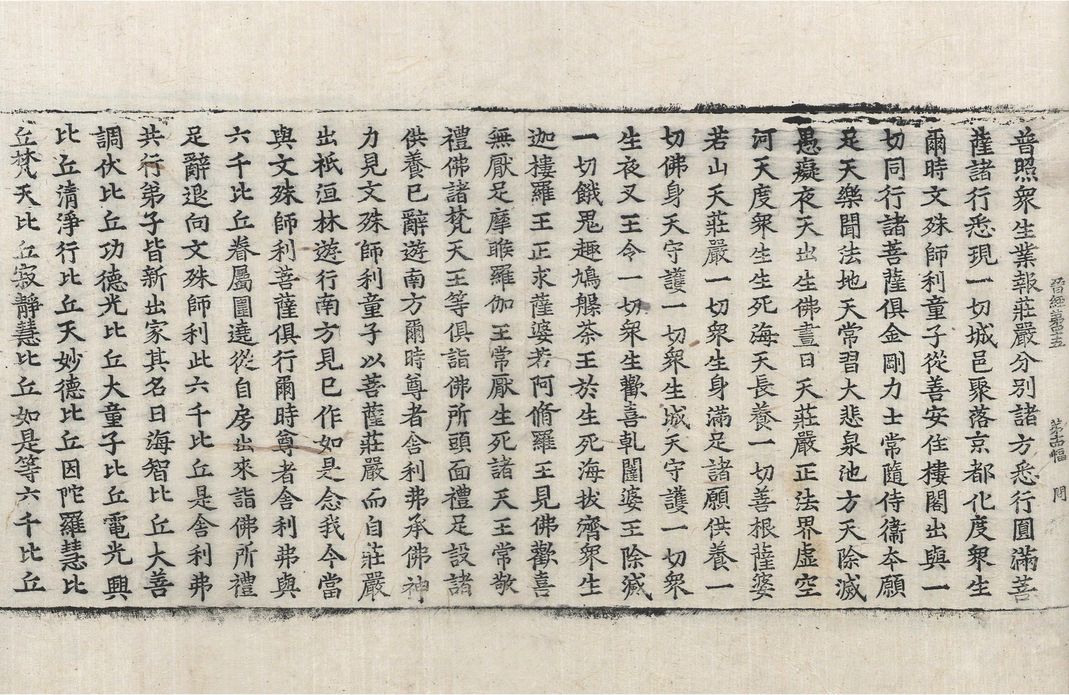 晉經第四十五 第十四幅
普照衆生業報莊嚴分別諸方悉行圓滿菩
薩諸行悉現一切城邑聚落京都化度衆生
爾時文殊師利童子從善安住樓閣出與一
切同行諸菩薩俱金剛力士常隨侍衞本願
足天樂聞法地天常習大悲泉池方天除滅
愚癡夜天出生佛晝日天莊嚴正法界虛空
河天度衆生生死海天長養一切善根薩婆
若山天莊嚴一切衆生身滿足諸願供養一
切佛身天守護一切衆生城天守護一切衆
生夜叉王令一切衆生歡喜乹闥婆王除滅
一切餓鬼趣鳩槃茶王於生死海拔濟衆生
迦樓羅王正求薩婆若阿脩羅王見佛歡喜
無厭足摩睺羅伽王常厭生死諸天王常敬
禮佛諸梵天王等俱詣佛所頭面禮足設諸
供養已辭遊南方爾時尊者舍利弗承佛神
力見文殊師利童子以菩薩莊嚴而自莊嚴
出祇洹林遊行南方見已作如是念我今當
與文殊師利菩薩俱行爾時尊者舍利弗與
六千比丘眷屬圍遶從自房出來詣佛所禮
足辭退向文殊師利此六千比丘是舍利弗
共行弟子皆新出家其名曰海智比丘大善
調伏比丘功德光比丘大童子比丘電光興
比丘清淨行比丘天妙德比丘因陀羅慧比
丘梵天比丘寂靜慧比丘如是等六千比丘